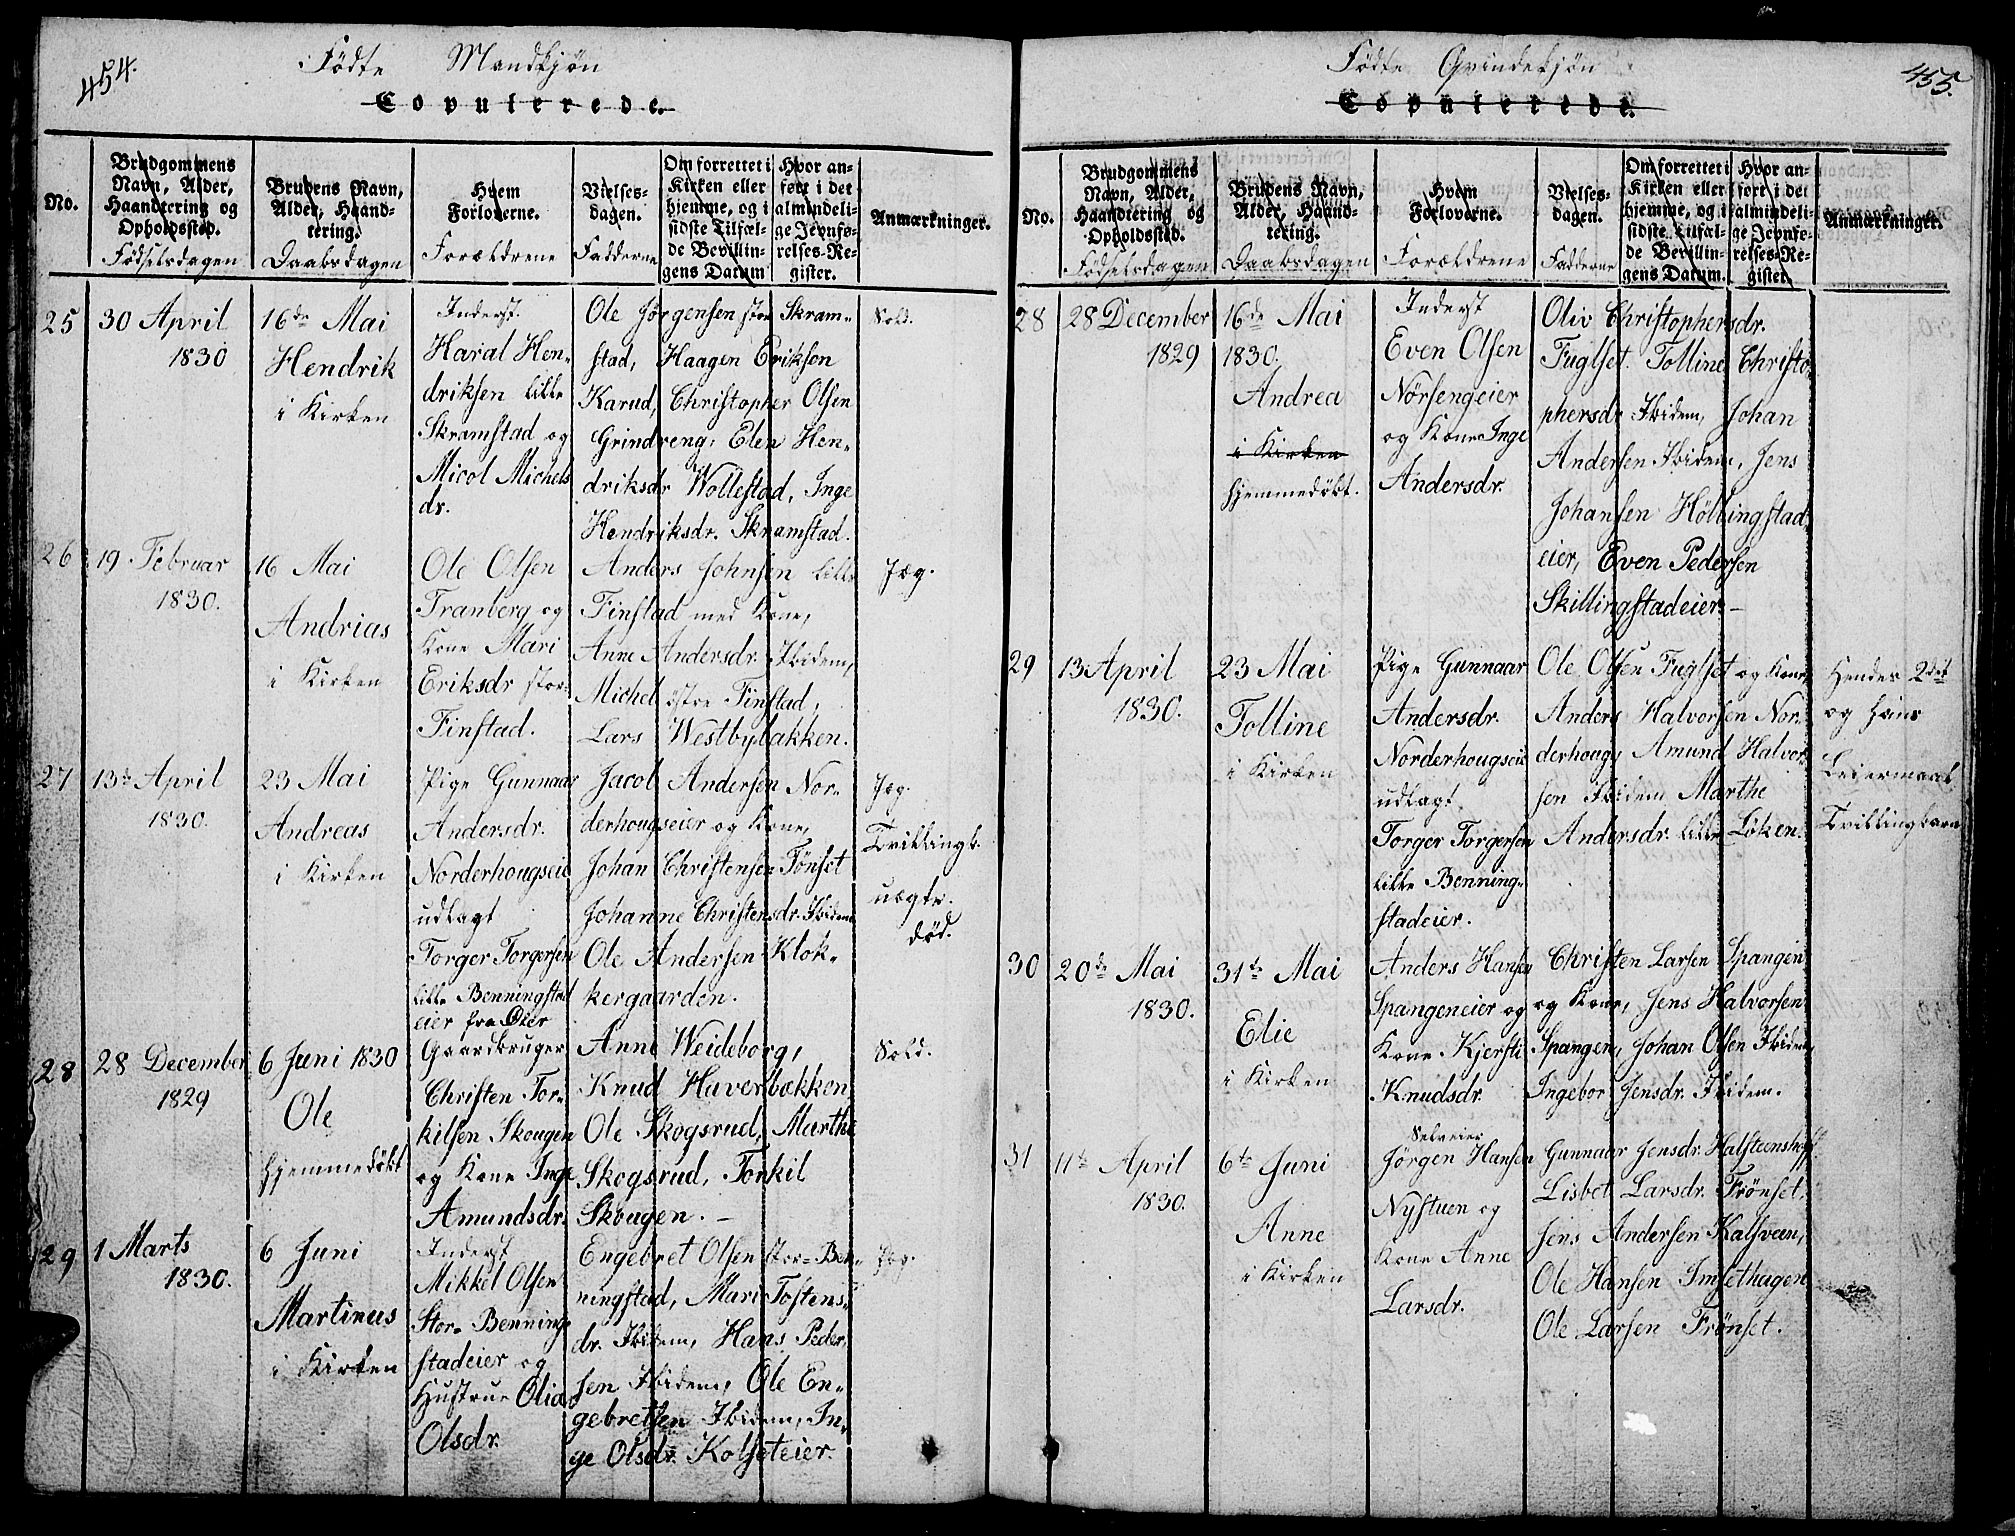 454.
Fødte Mandkjøn
Copulerede.
No.
Brudgommens
Navn, Alder,
Haandtering og
Opholdssted.
Fødselsdagen
Brudens Navn,
Alder, Haand-
tering.
Daabsdagen
Hvem
Forloverne.
Forældrene
Vielses-
dagen.
Fadderne
Om forrettet i
Kirken eller
hjemme, og i
sidste Tilfæl-
de Bevillin-
gens Datum
Hvor an-
ført i det
almindeli-
ge Jevnfø-
relses-Re-
gister.
Anmærkninger.
25
30 April
1830
16de Mai
Hendrik
i Kirken
Inderst.
Haral Hen-
driksen lille
Skramstad og
Micol Michels
dr.
Ole Jørgensen stor Skram-
stad, Haagen Erikson
Karud, Christopher Olsen
Grindveng, Elen Hen-
driksdr Wollestad, Inge
Hendriksdr. Skramstad.
Sold.
26
19 Februar
1830.
16 Mai
Andrias
i Kirken
Ole Olsen
Tranberg og
Kone Mari
Eriksdr stor-
Finstad.
Anders Johnsen lille
Finstad med Kone,
Anne Andersdr. Ibidem,
Michel østre Finstad,
Lars Westbybakken.
Jæg.
27
13de April
1830.
23 Mai
Andreas
i Kirken
Pige Gunnaar
Andersdr.
Norderhougseie
udlagt
Torger Torgersen
lille Benningstad
eier fra Øier
Jacob Andersen Nor-
derhougseier og Kone,
Johan Christensen Tønset
Johanne Christensdr. Ibidem
Ole Andersen Klok-
kergaarden.
Jæg.
Tvillingb.
uægte.
død.
28
28 December
1829
6 Juni 1830
Ole
hjemmedøbt
Gaardbruger
Christen Tor-
kilsen Skougen
og Kone Inge
Amundsdr.
Anne Weideborg,
Knud Haverbækken
Ole Skogsrud, Marthe
Skogsrud, Torkil
Skougen. -
Sold.
29
1 Marts
1830.
6 Juni
Martinus
i Kirken
Inderst
Mikkel Olsen
Stor-Bennings-
stadeier og
Hustrue Olia
Olsdr.
Engebret Olsen stor-Ben-
ningstad, Mari Tostens-
dr. Ibidem, Hans Peder-
sen Ibidem, Ole En-
gebretsen Ibidem, In-
ge Olsdr. Kolseteier.
Jæg.
455.
Fødte Qvindekjøn
Copulerede.
No.
Brudgommens
Navn, Alder,
Haandtering og
Opholdssted.
Fødselsdagen
Brudens Navn,
Alder, Haand-
tering.
Daabsdagen
Hvem
Forloverne.
Forældrene
Vielses-
dagen.
Fadderne
Om forrettet i
Kirken eller
hjemme, og i
sidste Tilfæl-
de Bevillin-
gens Datum.
Hvor an-
ført i det
almindeli-
ge Jevnfø-
relses-Re-
gister.
Anmærkninger.
28
28 December
1829
16de Mai
1830.
Andrea
i Kirken
hjemmedøbt.
Inderst
Even Olsen
Nørsengeier
og Kone Inge
Andersdr.
Oliv Christophersdr.
Fuglset. Tolline Christo-
phersdr Ibidem, Johan
Andersen Ibidem, Jens
Johansen Høllingstad
eier, Even Pedersen
Skillingstadeier. -
29
13 April
1830.
23 Mai
Tolline
i Kirken
Pige Gunnaar
Andersdr.
Norderhougseie
udlagt
Torger Torgersen
lille Benning-
stadeier.
Ole Olsen Fuglset og Kone,
Anders Halvorsen Nor-
derhoug, Amund Halvor-
sen Ibidem Marthe
Andersdr. lille Løken.
Hendes 2det
og hans
Leiermaal
Tvillingbarn
30
20de Mai
1830.
31te Mai
Elie
i Kirken
Anders Hansen
Spangeneier og
Kone Kjersti
Knudsdr.
Christen Larsen Spangen
og Kone, Jens Halvorsen
Spangen, Johan Olsen Ibidem,
Ingebor Jensdr. Ibidem.
31
11te April
1830.
6te Juni
Anne
i Kirken
Selveier
Jørgen Hansen
Nystuen og
Kone Anne
Larsdr.
Gunnaar Jensdr. Halsteenshoff
Lisbet Larsdr. Frønset.
Jens Andersen Kalsveen,
Ole Hansen Imsethagen
Ole Larsen Frønset.